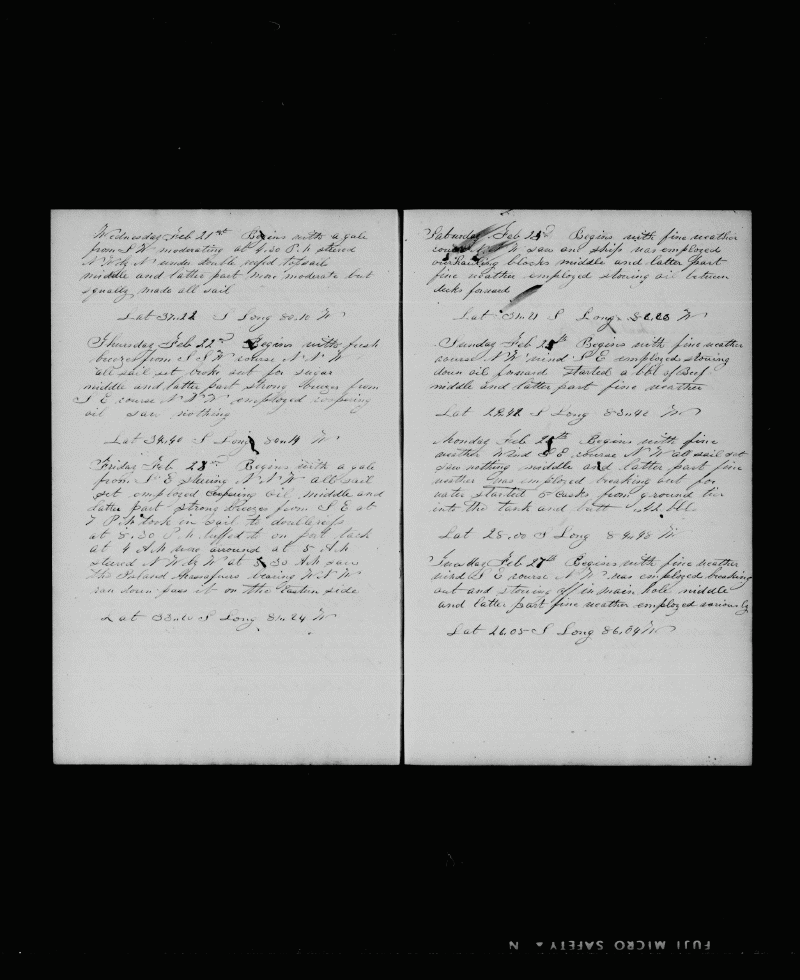 Wednesday Feb 21st Begins with a gale
from S W moderating at 4.30 P.M steered
N W by N under double reefed topsails
middle and latter part more moderate but
squally made all sail
Lat 37.22 S Long 80.10 W
Thursday Feb 22d Begins with fresh
breezes from S S W course N N W
all sail set broke out for sugar
middle and latter part strong breezes from
S E course N N W employed coopering
oil saw nothing
Lat 34.40 S Long W
Friday Feb 23d Begins with a gale
from S E steering N N W all sail
set employed coopering oil middle and
latter part strong breezes from S E at
7 P.M took in sail to double reefs
at 8.30 P.M luffed to on port tack
at 4 A.M wore around at 5 A.M
steered N W by W at 5.30 A.M saw
the Island bearing W N W
ran down pass it on the Eastern side
Lat S Long W
Saturday Feb 24 Begins with fine weather
course N W saw one ship was employed
overhauling blocks middle and latter part
fine weather employed stowing oil between
decks forward
Lat 31.21 S Long W
Sunday Feb 25th Begins with fine weather
course N W wind S E employed stowing
down oil forward started a bbl of Beef
middle and latter part fine weather
Lat 29.42 S Long 83.42 W
Monday Feb 26th Begins with fine
weather Wind S E course N W all sail set
saw nothing middle and latter part fine
weather was employed breaking out for
water started 5 casks from ground tier
into the tank and butt bbl
Lat 28.00 S Long 84.48 W
Tuesday Feb 27th Begins with fine weather
wind S E course N W was employed breaking
out and stowing off in main hole middle
and latter part fine weather employed variously
Lat 26.05 S Long 86.04 W
FUJI MICRO SAFETY ▲ N